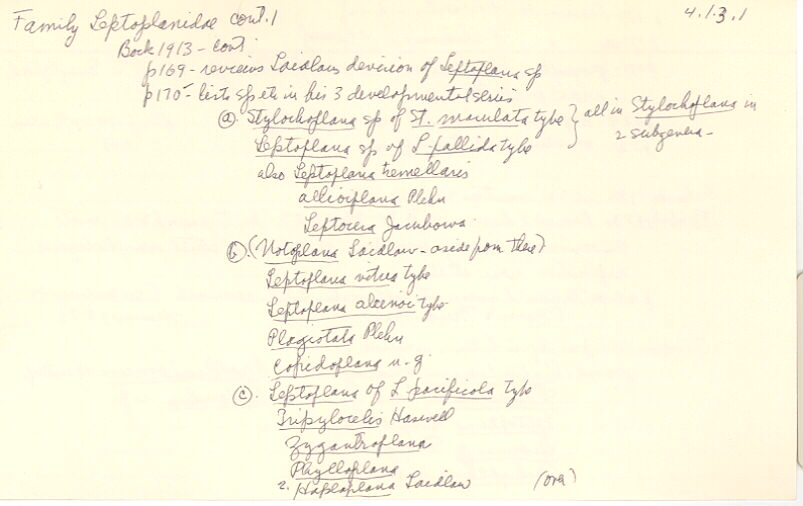 Family Leptoplanidae cont. 1 4.1.3.1
Bock 1913 - cont
p169 - reviews Laidlaws devision of Leptoplana sp
p170 - lists sp etc in his 3 developmental series
(a). Stylochoplana sp of St. maculata type } all in Stylochoplana in
Leptoplana sp of L. pallida type 2 subgenera -
also Leptoplana tremellaris
allioiplana Plehn
Leptocera Jacubowa
(b). (Notoplana Laidlaw - aside from these)
Leptoplana vitrea type
Leptoplana alcinoi type
Plagiotata Plehn
Copidoplana n.g.
(c). Leptoplana of L. pacificola type
Tripylocelis Haswell
Zygantroplana
Phylloplana
2. Haploplana Laidlaw (over)